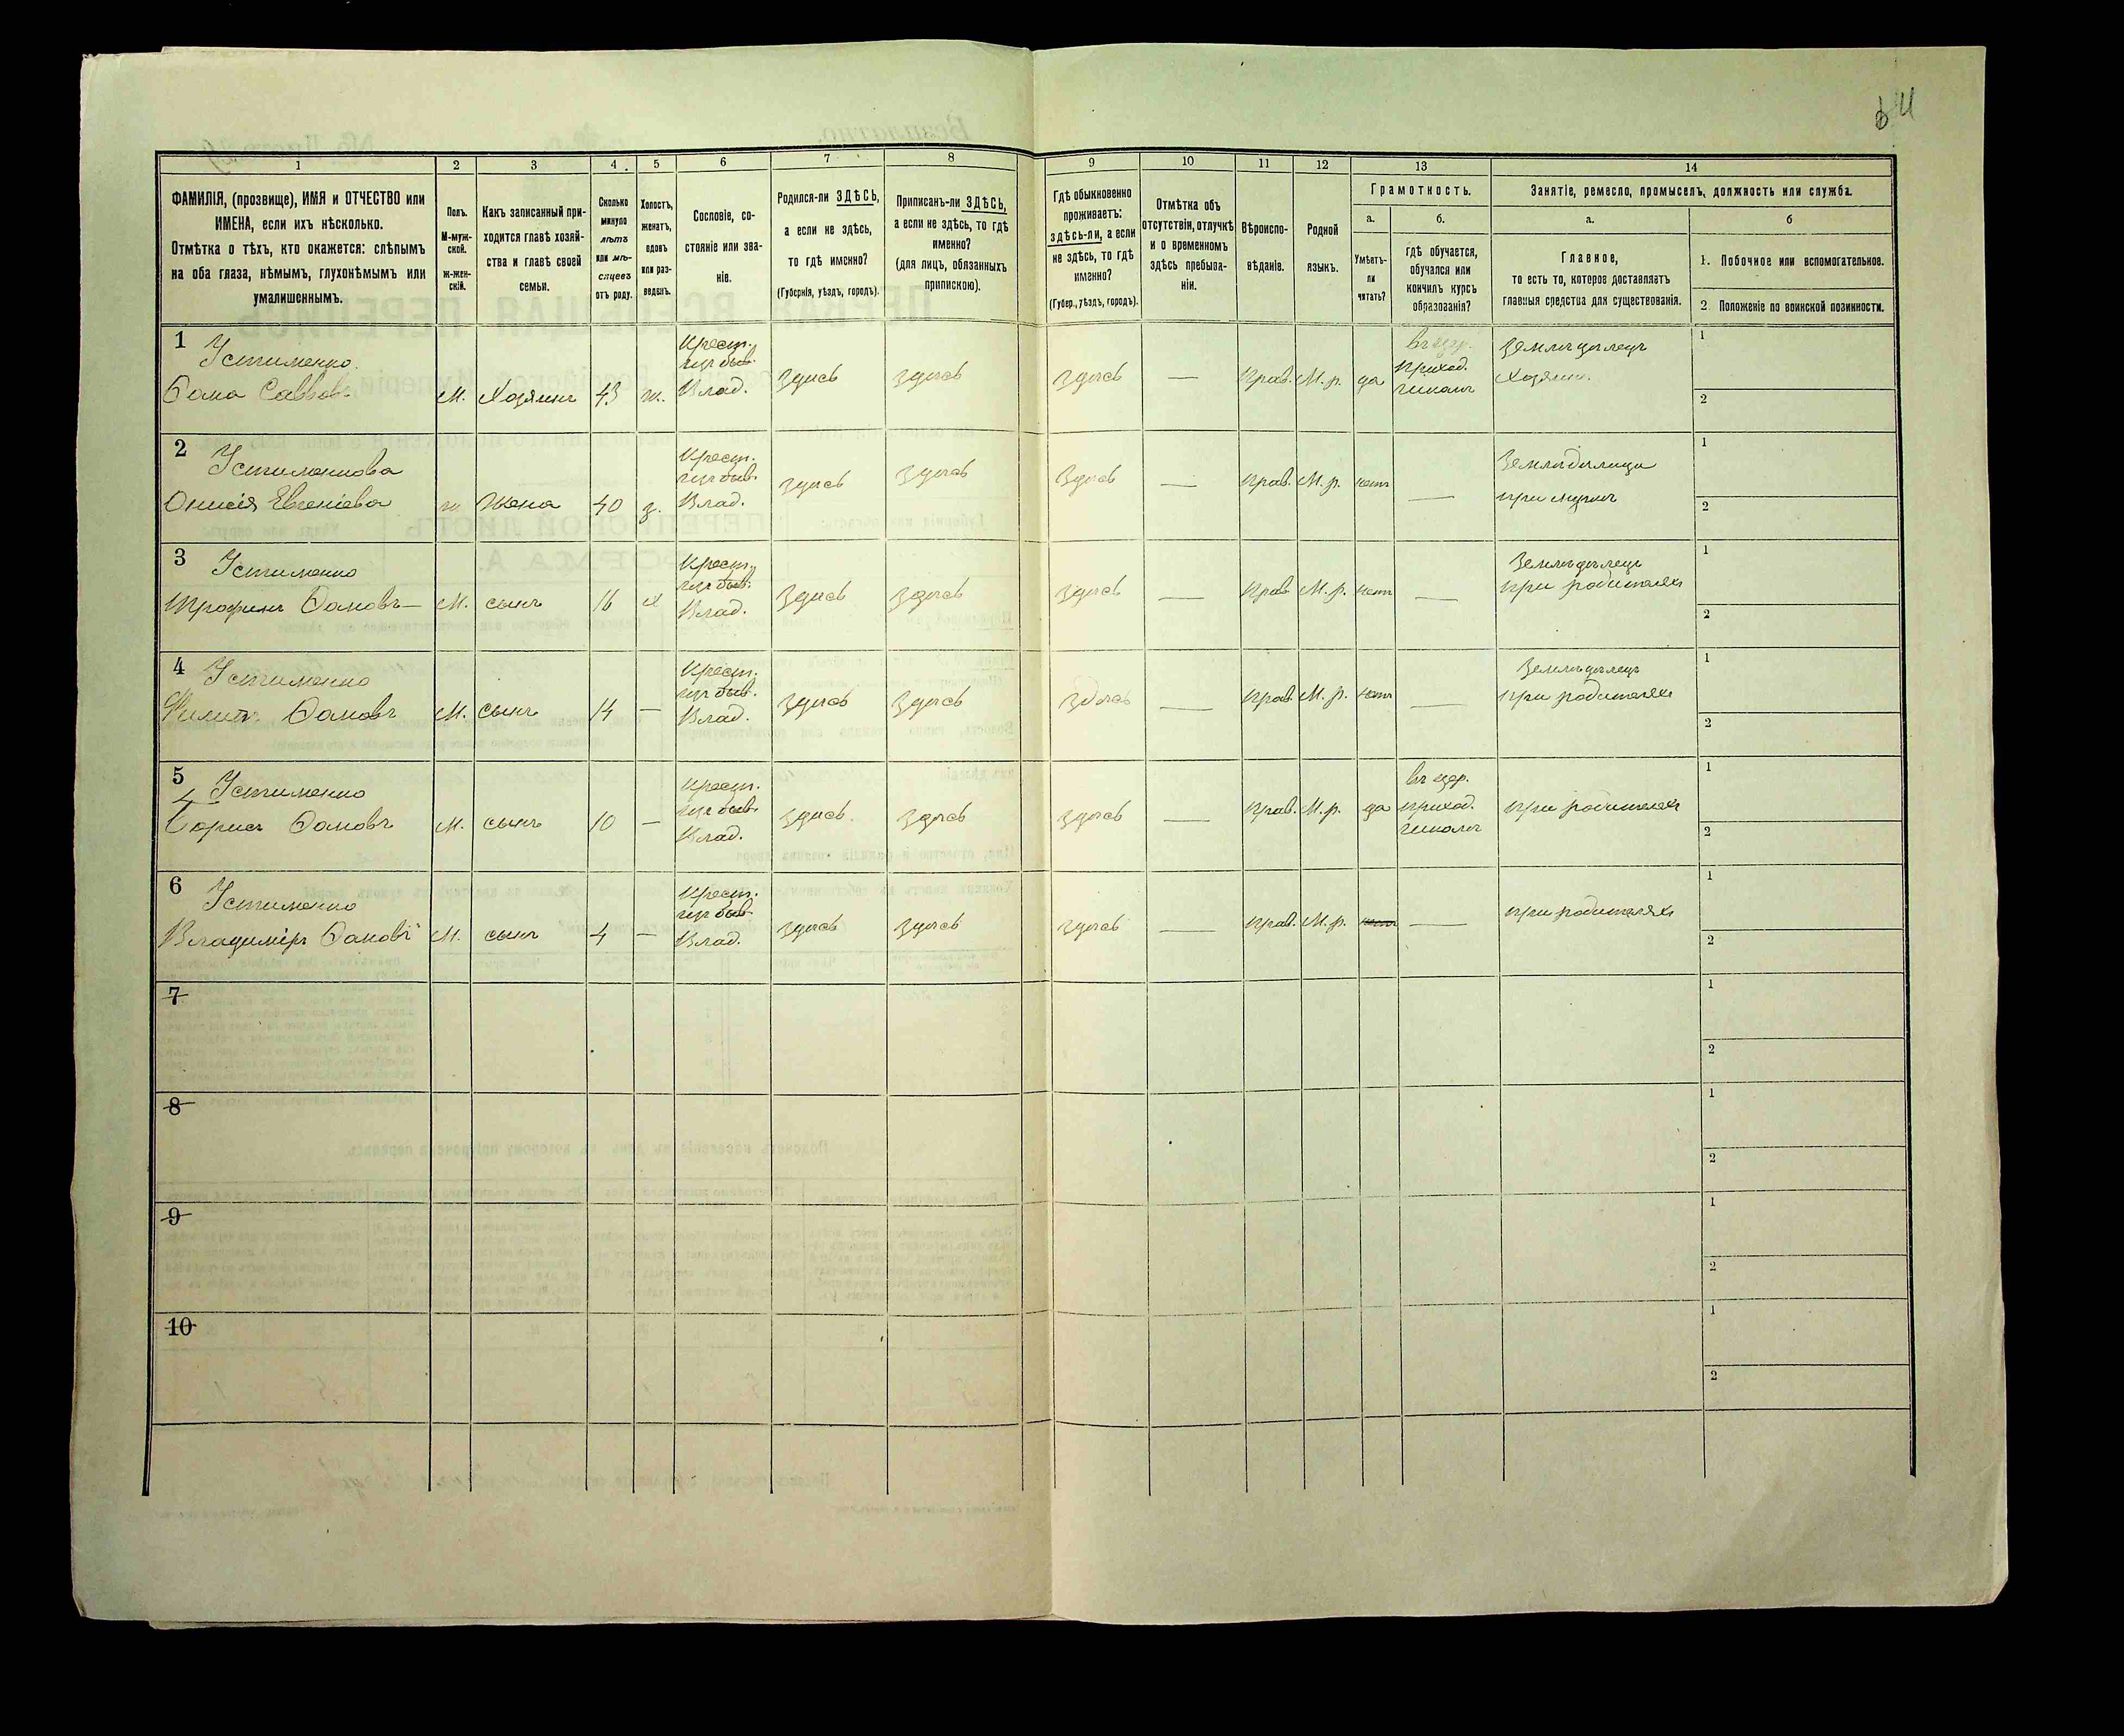 1 2 3 4 5 6 7 8 9 10 11 12 13 14
ФАМИЛІЯ, (прозвище), ИМЯ и ОТЧЕСТВО или
ИМЕНА, если ихъ нѣсколько.
Отмѣтка о тѣхъ, кто окажется: слѣпымъ
на оба глаза, нѣмымъ, глухонѣмымъ или
умалишеннымъ.
Полъ.
М-муж-
ской.
Ж-жен-
скій.
Какъ записанный при-
ходится главѣ хозяй-
ства и главѣ своей
семьи.
Сколько
минуло
лѣтъ
или мѣ-
сяцевъ
отъ роду.
Холостъ,
женатъ,
вдовъ
или раз-
веденъ.
Сословіе, со-
стояніе или зва-
ніе.
Родился-ли ЗДѢСЬ,
а если не здѣсь,
то гдѣ именно?
(Губернія, уѣздъ, городъ).
Приписанъ-ли ЗДѢСЬ,
а если не здѣсь, то гдѣ
именно?
(для лицъ, обязанныхъ
припискою).
Гдѣ обыкновенно
проживаетъ:
здѣсь-ли, а если
не здѣсь, то гдѣ
именно?
(Губер., уѣздъ, городъ).
Отмѣтка объ
отсутствіи, отлучкѣ
и о временномъ
здѣсь пребыва-
ніи.
Вѣроиспо-
вѣданіе.
Родной
языкъ.
Грамотность.
а.
Умѣетъ-
ли
читать?
б.
гдѣ обучается,
обучался или
кончилъ курсъ
образованія?
Занятіе, ремесло, промыселъ, должность или служба.
а.
Главное,
то есть то, которое доставляетъ
главныя средства для существованія.
б
1. Побочное или вспомогательное.
2. Положеніе по воинской повинности.
1 Устименко
Ѳома Саввовъ М. Хозяинъ 43 ж.
Крест.
изъ быв.
Влад.
здѣсь здѣсь здѣсь — Прав. М. р. да
въ цер.
приход.
школѣ
Земледѣлецъ
Хозяинъ
1
2
2 Устименкова
Онисія Евгеніева ж. Жена 40 з.
Крест.
изъ быв.
Влад.
здѣсь здѣсь здѣсь — Прав. М. р. нетъ —
Земледѣлица
при мужѣ
1
2
3 Устименко
Трофимъ Ѳомовъ М. сынъ 16 х
Крест.
изъ быв.
Влад.
здѣсь здѣсь здѣсь — Прав. М. р. нетъ —
Земледѣлецъ
при родителяхъ
1
2
4 Устименко
Филипъ Ѳомовъ М. сынъ 14 —
Крест.
изъ быв.
Влад.
здѣсь здѣсь здѣсь Прав. М. р. нетъ —
Земледѣлецъ
при родителяхъ
1
2
5 Устименко
Борисъ Ѳомовъ М. сынъ 10 —
Крест.
изъ быв.
Влад.
здѣсь здѣсь здѣсь — Прав. М. р. да
въ цер.
приход.
школѣ
при родителяхъ
1
2
6 Устименко
Владиміръ Ѳомовъ М. сынъ 4 —
Крест.
изъ быв.
Влад.
здѣсь здѣсь здѣсь — Прав. М. р. нетъ —
при родителяхъ
1
2
7
1
2
8
1
2
9
1
2
10
1
2